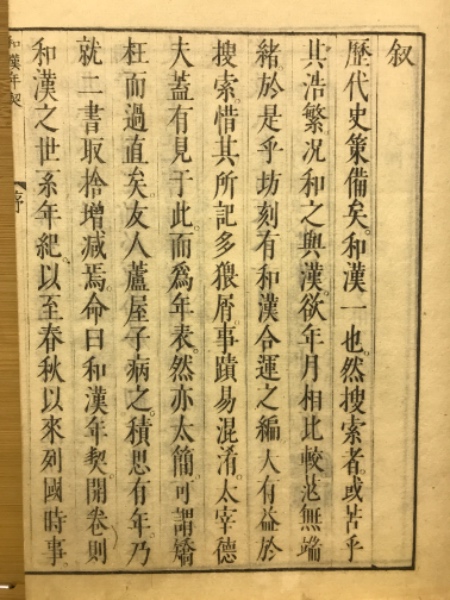 叙
歷代史策備矣。和漢一也。然搜索者。或苦乎
其浩繁。况和之與漢。欲年月相比較。茫無端
緒。於是乎坊刻有和漢合運之編。大有益於
搜索。惜其所記多猥屑。事蹟易混淆。太宰德
夫蓋有見于此。而爲年表。然亦太簡。可謂矯
枉而過直矣。友人蘆屋子病之。積思有年。乃
就二書取捨增减焉。命曰和漢年契。開卷則
和漢之世系年紀。以至春秋以來列國時事。
和漢年契 序